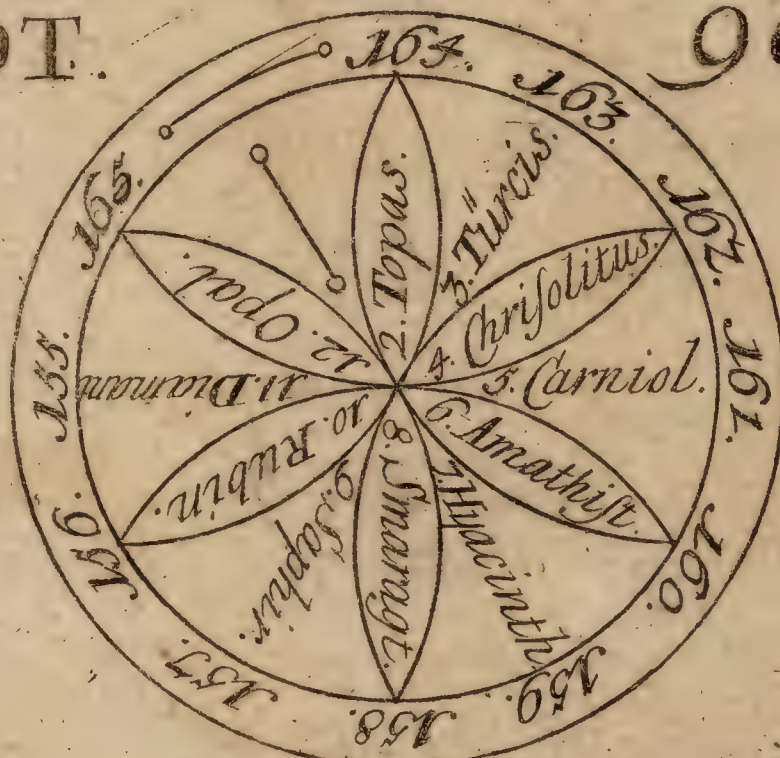 OT.
9
164.
163.
162.
161.
160.
159.
158.
157.
156.
155.
165.
2. Topas.
3. Türcis.
4. Chriſolitus.
5. Carniol.
6. Amathiſt.
7. Hyacinth
8. Smaragt.
9. Saphir.
10. Rubin.
11. Diamann
12. Opal.